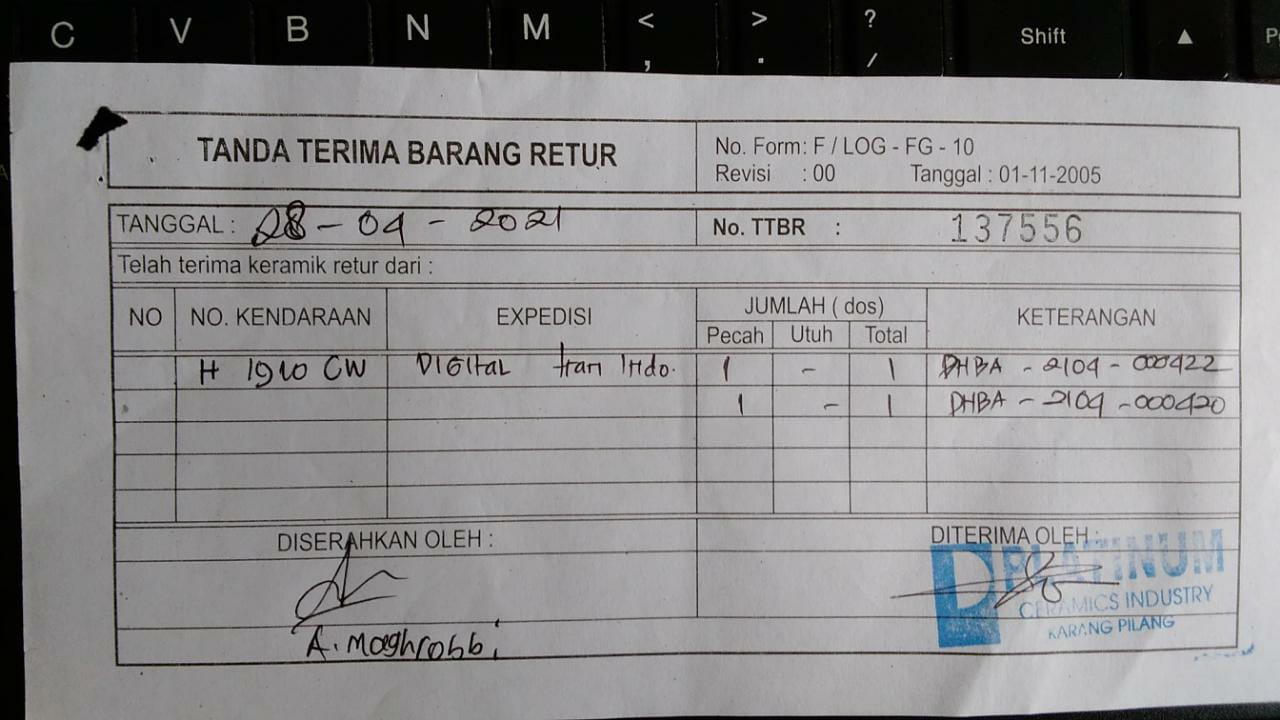 C V B N M < , > . ? / Shift ▲
TANDA TERIMA BARANG RETUR
No. Form: F / LOG - FG - 10
Revisi : 00 Tanggal : 01-11-2005
TANGGAL : 28 - 04 - 2021
No. TTBR : 137556
Telah terima keramik retur dari :
NO NO. KENDARAAN EXPEDISI JUMLAH ( dos) KETERANGAN
Pecah Utuh Total
H 1910 CW DIGITAL tran Indo. 1 - 1 DHBA - 2104 - 000422
1 - 1 DHBA - 2104 - 000420
DISERAHKAN OLEH :
DITERIMA OLEH :
PLATINUM
CERAMICS INDUSTRY
KARANG PILANG
A. Maghrobbi